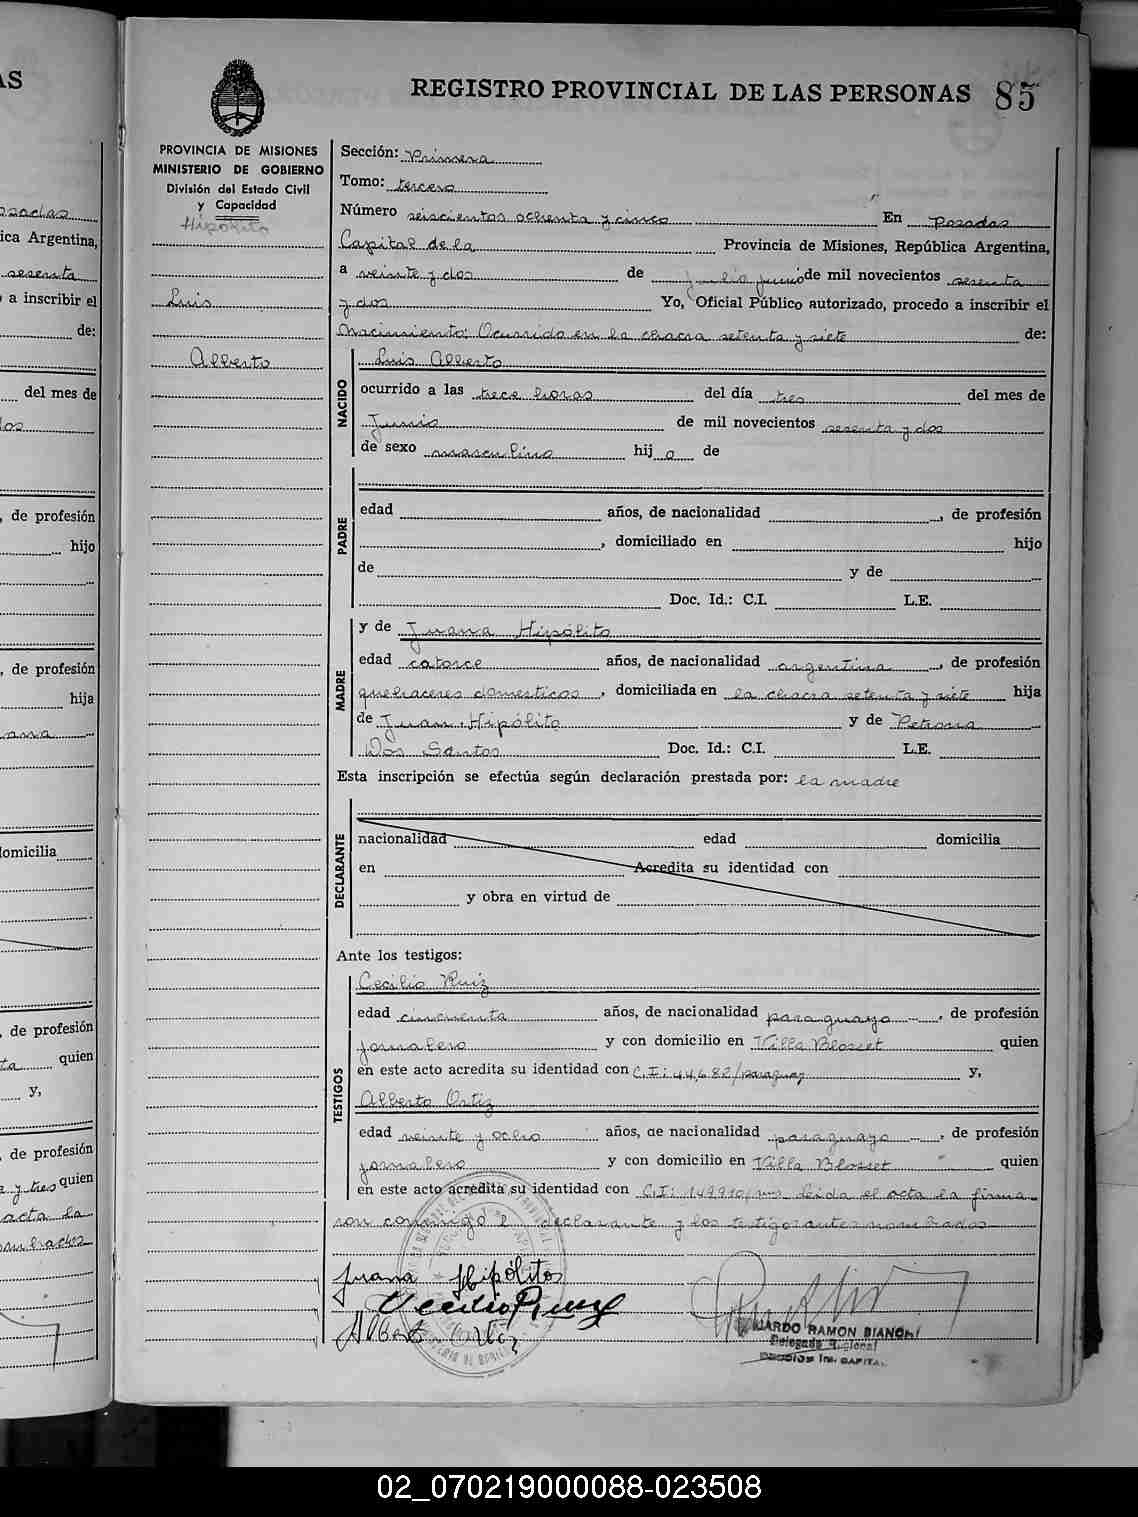 AS
REGISTRO PROVINCIAL DE LAS PERSONAS 85
PROVINCIA DE MISIONES
MINISTERIO DE GOBIERNO
División del Estado Civil
y Capacidad
Hipólito
Luis
Alberto
Sección: Primera
Tomo: tercero
Número seiscientos ochenta y cinco En Posadas
Capital de la Provincia de Misiones, República Argentina,
a veinte y dos de junio de mil novecientos sesenta
y dos Yo, Oficial Público autorizado, procedo a inscribir el
Nacimiento: Ocurrido en la chacra setenta y siete de:
NACIDO
Luis Alberto
ocurrido a las trece horas del día tres del mes de
Junio de mil novecientos sesenta y dos
de sexo masculino hij o de
PADRE
edad años, de nacionalidad , de profesión
, domiciliado en hijo
de y de
Doc. Id.: C.I. L.E.
MADRE
y de Juana Hipólito
edad catorce años, de nacionalidad argentina , de profesión
quehaceres domesticos , domiciliada en la chacra setenta y siete hija
de Juan Hipólito y de Petrona
Dos Santos Doc. Id.: C.I. L.E.
Esta inscripción se efectúa según declaración prestada por: la madre
DECLARANTE
nacionalidad edad domicilia
en Acredita su identidad con
y obra en virtud de
Ante los testigos:
TESTIGOS
Cecilio Ruiz
edad cincuenta años, de nacionalidad paraguayo , de profesión
jornalero y con domicilio en Villa Blosset quien
en este acto acredita su identidad con C.I: 44.682/paraguay y,
Alberto Ortiz
edad veinte y ocho años, de nacionalidad paraguayo , de profesión
jornalero y con domicilio en Villa Blosset quien
en este acto acredita su identidad con C.I: 149910/ms Leida el acta la firma
ron conmigo l declarante y los testigos antes nombrados
Juana Hipólitos
Cecilio Ruiz
Alberto Ortiz
EDUARDO RAMON BIANCHI
Delegado Regional
CAPITAL
osadas
ica Argentina,
sesenta
a inscribir el
de:
del mes de
dos
, de profesión
hijo
, de profesión
hija
domicilia
, de profesión
quien
y,
, de profesión
y tres quien
acta la
nombrados
02_070219000088-023508